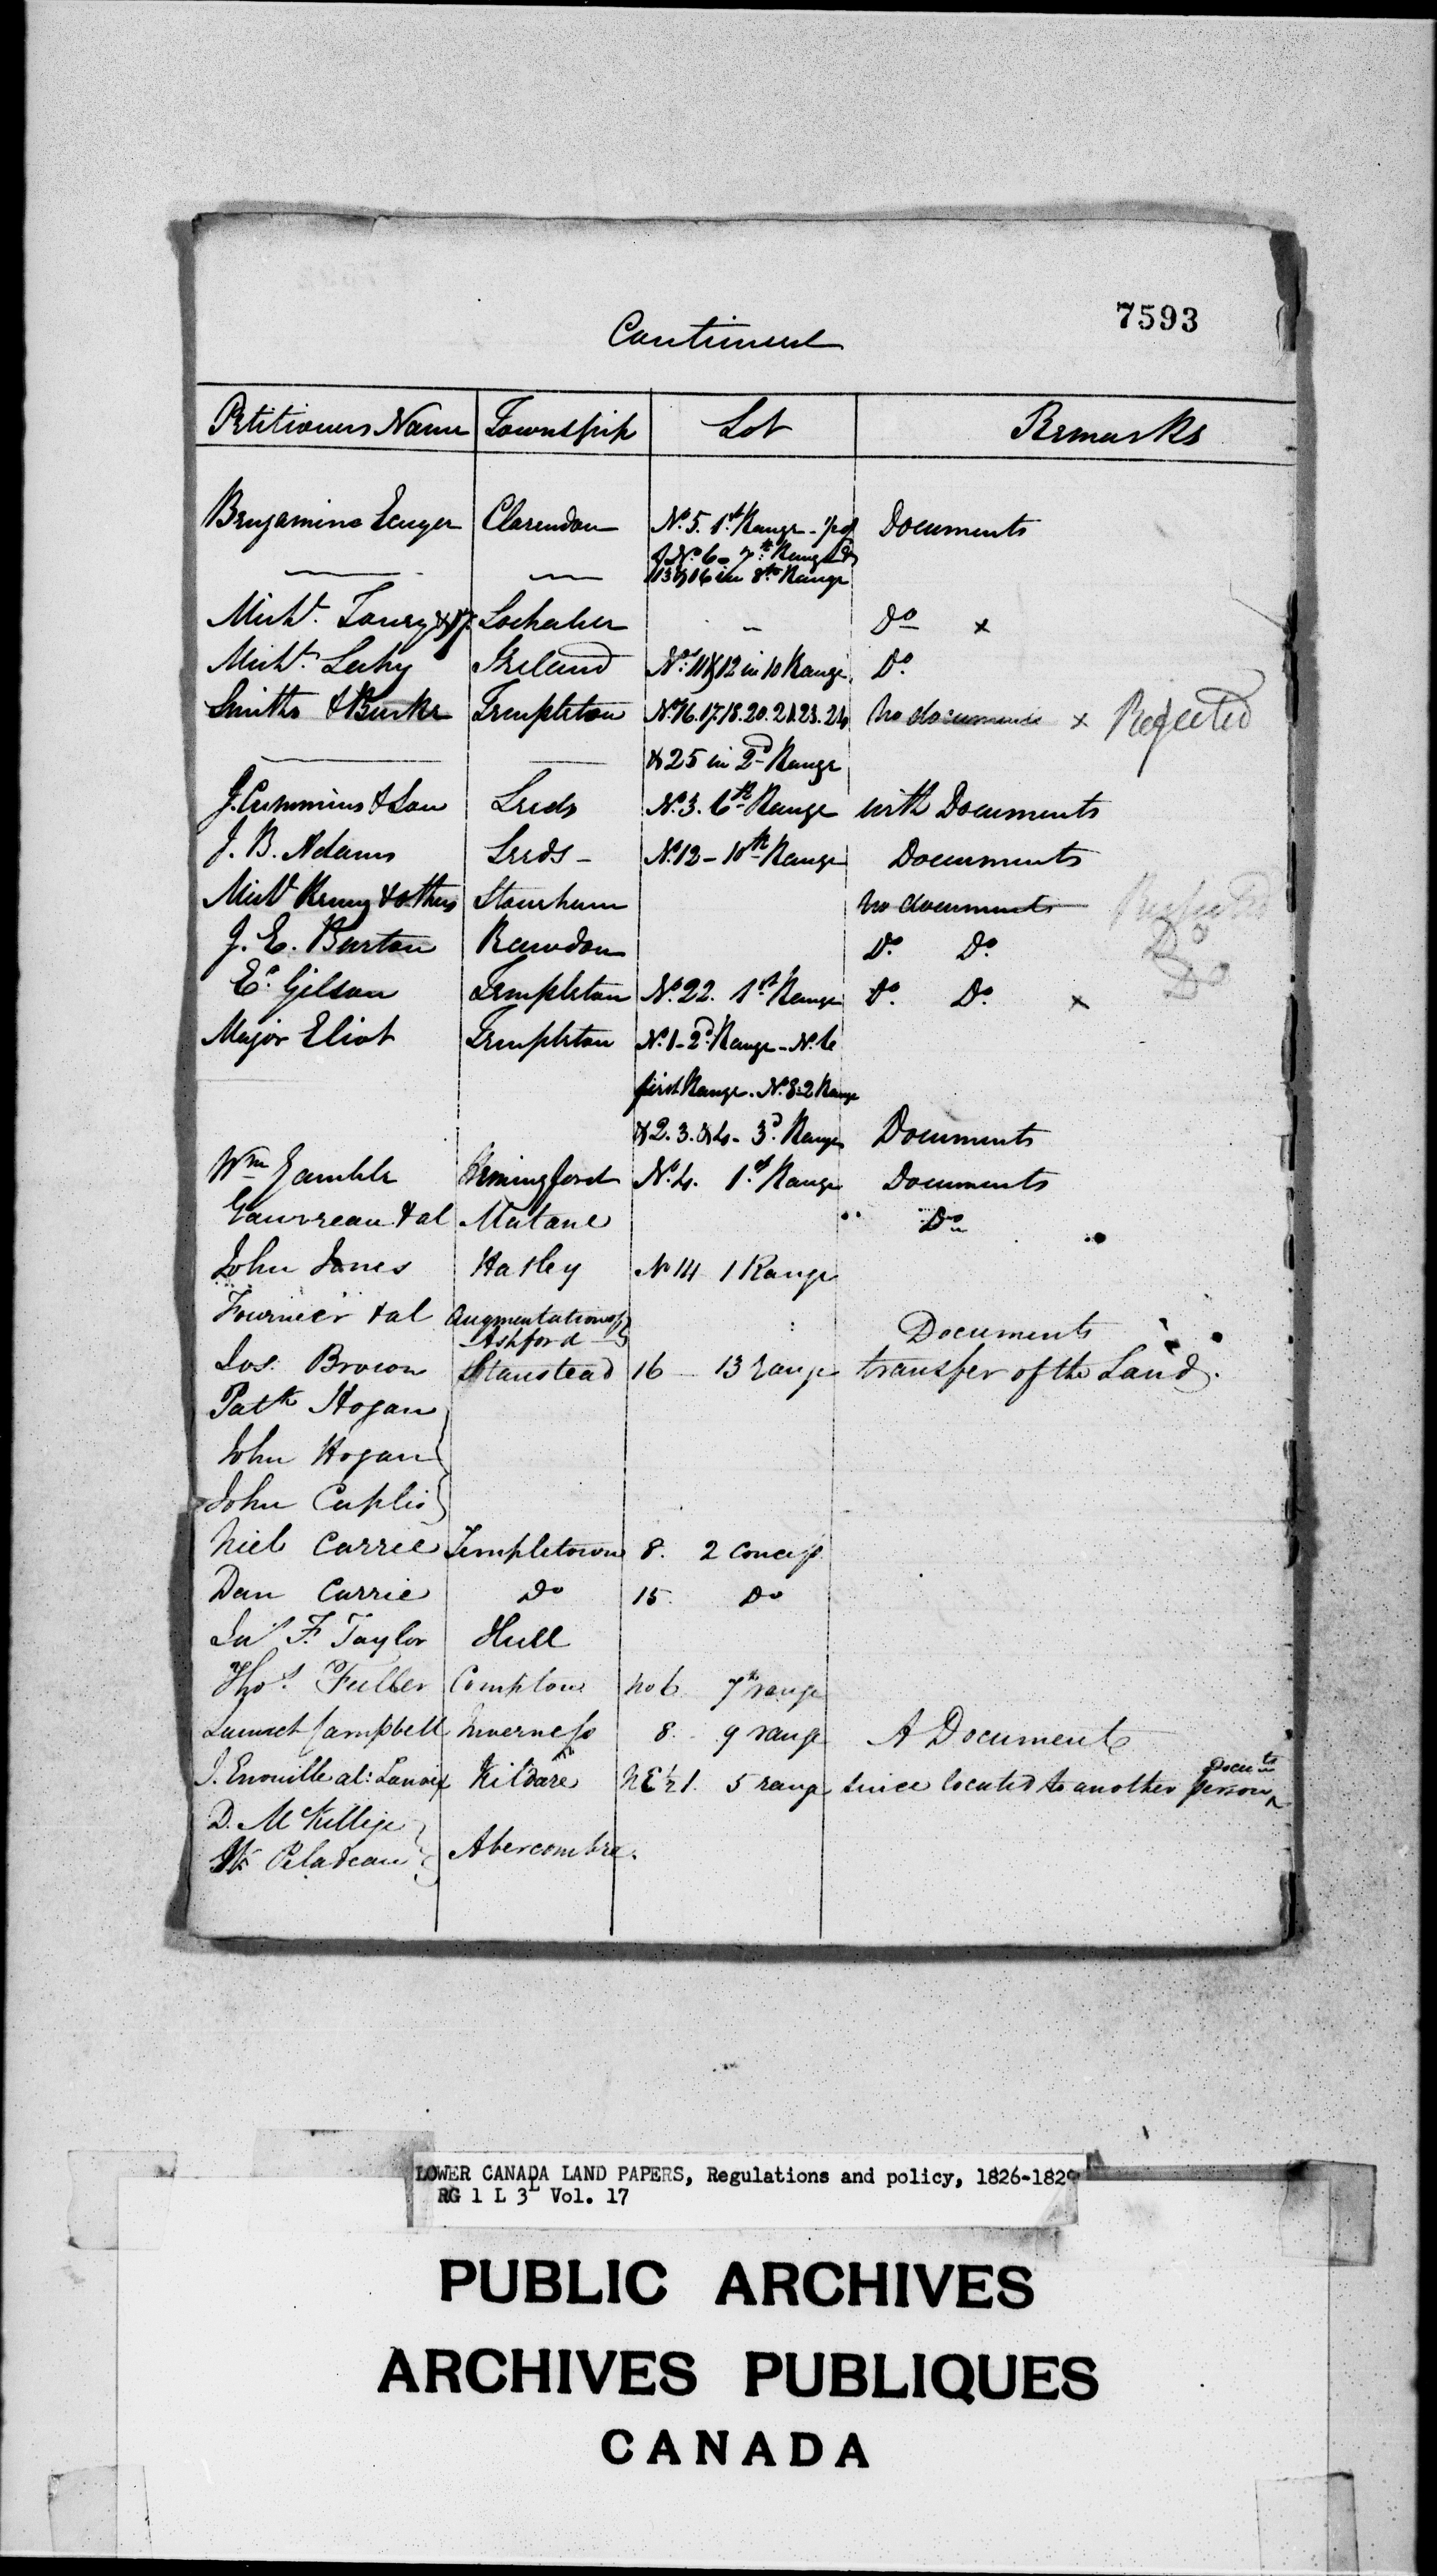 7593
Continued
Petitioners Name Township Lot Remarks
Benjamine Clarendon No. 5. 1st Range - Documents
No. 6 - 7th Range &
13 & 16 in 8th Range
Michl. Lochaber Do x
Michl. Leahy Ireland Nos. 11 & 12 in 10 Range Do.
Smiths & Burke Templeton No. 16. 17. 18. 20. 21. 23. 24 No documents x Rejected
& 25 in 2d Range
J. Cummins & Son Leeds No. 3. 6th Range with Documents
J. B. Adams Leeds - No. 12 - 10th Range Documents
Michl Kenny & others Stoneham no documents Rejected
J. E. Burton Rawdon Do. Do. Do
Ed. Gilson Templeton No. 22. 1st Range Do. Do. x Do
Major Eliot Templeton No. 1 - 2d Range - No. 6
first Range. No. 8 - 2 Range
& 2. 3. & 4 - 3d. Range Documents
Wm Gamble Hemingford No. 4. 1st Range Documents
Gauvreau & al Matane Do
John Jones Hatley No 14 1 Range
Fournier & al Augmentation of
Ashford Documents
Jos. Brown Stanstead 16 - 13 range transfer of the Land.
Patk Hogan
John Hogan
John Cuplis
Niel Currie Templetown 8. 2 Concess
Dan Currie Do 15. Do
Jas F. Taylor Hull
Thos. Fuller Compton No 6 7th range
Campbell Inverness 8. 9 range A Document
J. Enouille al: Lanoix Kildare N E ½ 1. 5 range since located to another person Docuts
D. McKillige
Peladeau Abercombre.
LOWER CANADA LAND PAPERS, Regulations and policy, 1826-1829
RG 1 L 3L Vol. 17
PUBLIC ARCHIVES
ARCHIVES PUBLIQUES
CANADA